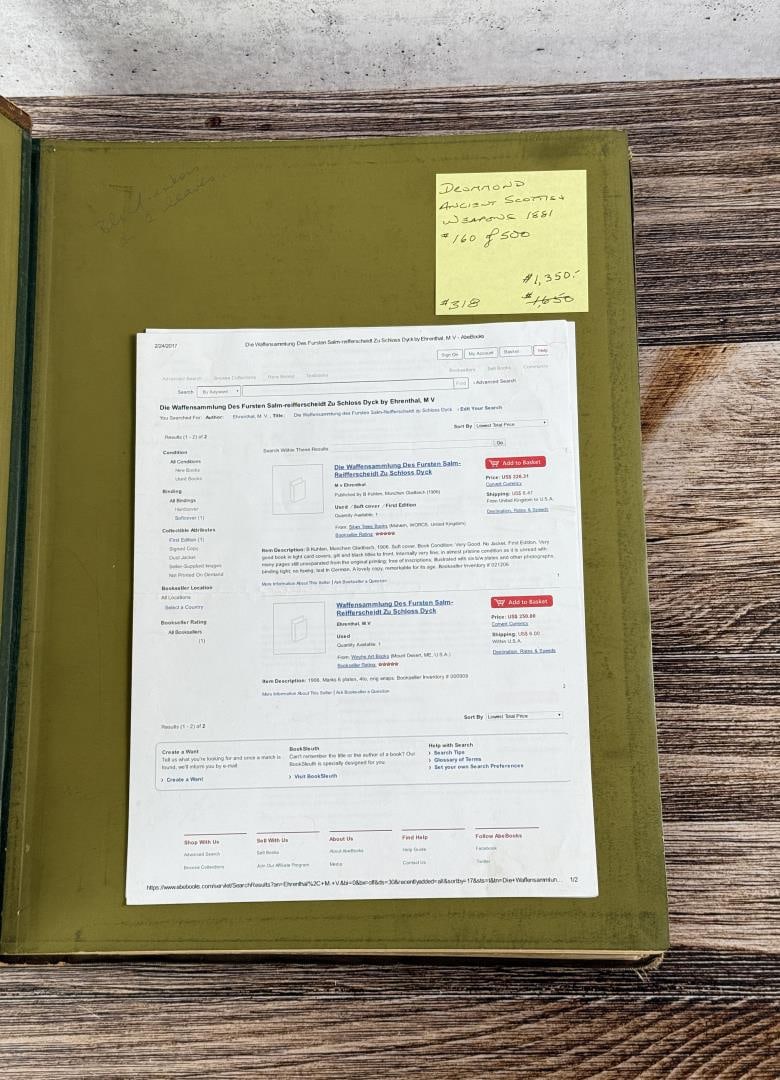 DRUMMOND
ANCIENT SCOTTISH
WEAPONS 1881
#160 of 500
$1,350.-
#318 $1,650
2/24/2017 Die Waffensammlung Des Fursten Salm-reifferscheidt Zu Schloss Dyck by Ehrenthal, M V - AbeBooks
Sign On My Account Basket Help
Advanced Search Browse Collections Rare Books Textbooks Booksellers Sell Books Community
Search By Keyword Find › Advanced Search
Die Waffensammlung Des Fursten Salm-reifferscheidt Zu Schloss Dyck by Ehrenthal, M V
You Searched For: Author: Ehrenthal, M V , Title: Die Waffensammlung des Fursten Salm-Reifferscheidt zu Schloss Dyck › Edit Your Search
Sort By Lowest Total Price
Results (1 - 2) of 2
Search Within These Results
Go
Condition
All Conditions
New Books
Used Books
Binding
All Bindings
Hardcover
Softcover (1)
Collectible Attributes
First Edition (1)
Signed Copy
Dust Jacket
Seller-Supplied Images
Not Printed On Demand
Bookseller Location
All Locations
Select a Country
Bookseller Rating
All Booksellers
(1)
Die Waffensammlung Des Fursten Salm-
Reifferscheidt Zu Schloss Dyck
M v Ehrenthal
Published by B Kuhlen, Munchen Gladbach (1906)
Used / Soft cover / First Edition
Quantity Available: 1
From: Silver Trees Books (Malvern, WORCS, United Kingdom)
Bookseller Rating:
Add to Basket
Price: US$ 226.31
Convert Currency
Shipping: US$ 8.47
From United Kingdom to U.S.A.
Destination, Rates & Speeds
Item Description: B Kuhlen, Munchen Gladbach, 1906. Soft cover. Book Condition: Very Good. No Jacket. First Edition. Very
good book in light card covers, gilt and black titles to front. Internally very fine, in almost pristine condition as it is unread with
many pages still unseparated from the original printing; free of inscriptions. Illustrated with six b/w plates and other photographs,
binding tight, no foxing, text in German. A lovely copy, remarkable for its age. Bookseller Inventory # 021206
More Information About This Seller | Ask Bookseller a Question
1
Waffensammlung Des Fursten Salm-
Reifferscheidt Zu Schloss Dyck
Ehrenthal, M.V
Used
Quantity Available: 1
From: Weyhe Art Books (Mount Desert, ME, U.S.A.)
Bookseller Rating:
Add to Basket
Price: US$ 250.00
Convert Currency
Shipping: US$ 6.00
Within U.S.A.
Destination, Rates & Speeds
Item Description: 1906. Marks 6 plates, 4to, orig wraps. Bookseller Inventory # 000909
More Information About This Seller | Ask Bookseller a Question
2
Sort By Lowest Total Price
Results (1 - 2) of 2
Create a Want
Tell us what you're looking for and once a match is
found, we'll inform you by e-mail
› Create a Want
BookSleuth
Can't remember the title or the author of a book? Our
BookSleuth is specially designed for you.
› Visit BookSleuth
Help with Search
› Search Tips
› Glossary of Terms
› Set your own Search Preferences
Shop With Us
Advanced Search
Browse Collections
Sell With Us
Sell Books
Join Our Affiliate Program
About Us
About AbeBooks
Media
Find Help
Help Guide
Contact Us
Follow AbeBooks
Facebook
Twitter
1/2